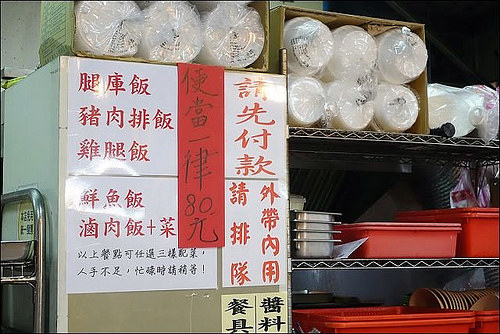 腿庫飯
豬肉排飯
雞腿飯
鮮魚飯
滷肉飯+菜
以上餐點可任選三樣配菜,
人手不足,忙碌時請稍等!
便當一律80元
請先付款
外帶內用
請排隊
醬料
餐具